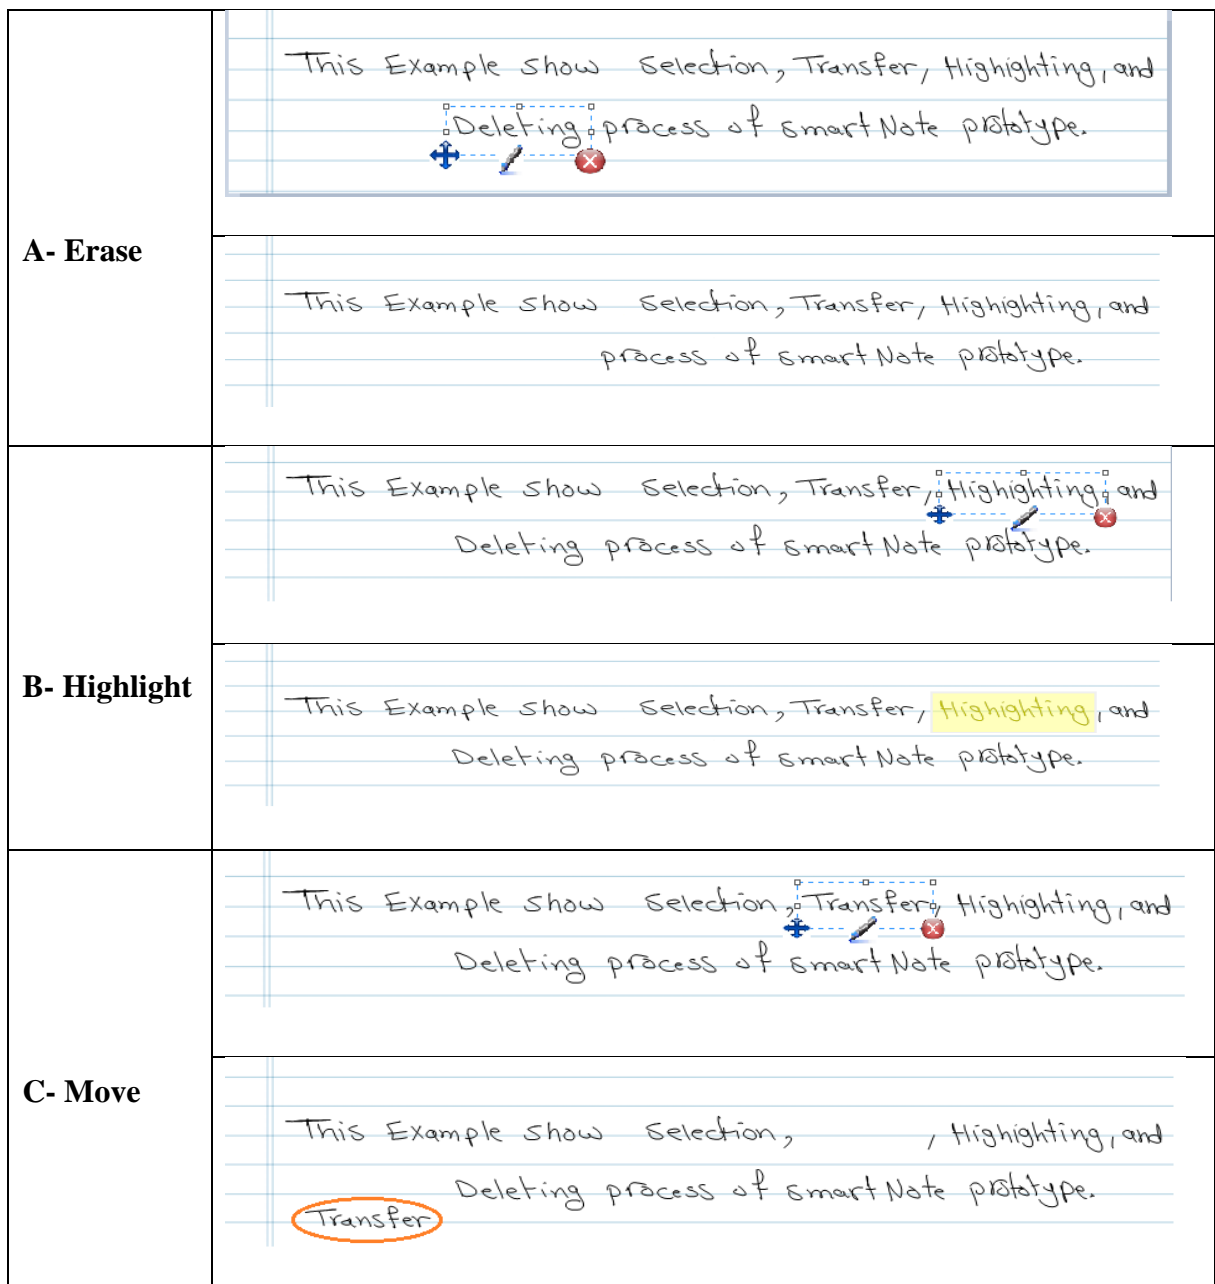 This Example show Selection, Transfer, Highighting, and
Deleting process of smart Note prototype.
A- Erase
This Example show Selection, Transfer, Highighting, and
process of smart Note prototype.
This Example show Selection, Transfer, Highighting, and
Deleting process of smart Note prototype.
B- Highlight
This Example show Selection, Transfer, Highighting, and
Deleting process of smart Note prototype.
This Example show Selection, Transfer, Highighting, and
Deleting process of smart Note prototype.
C- Move
This Example show Selection, , Highighting, and
Deleting process of smart Note prototype.
Transfer